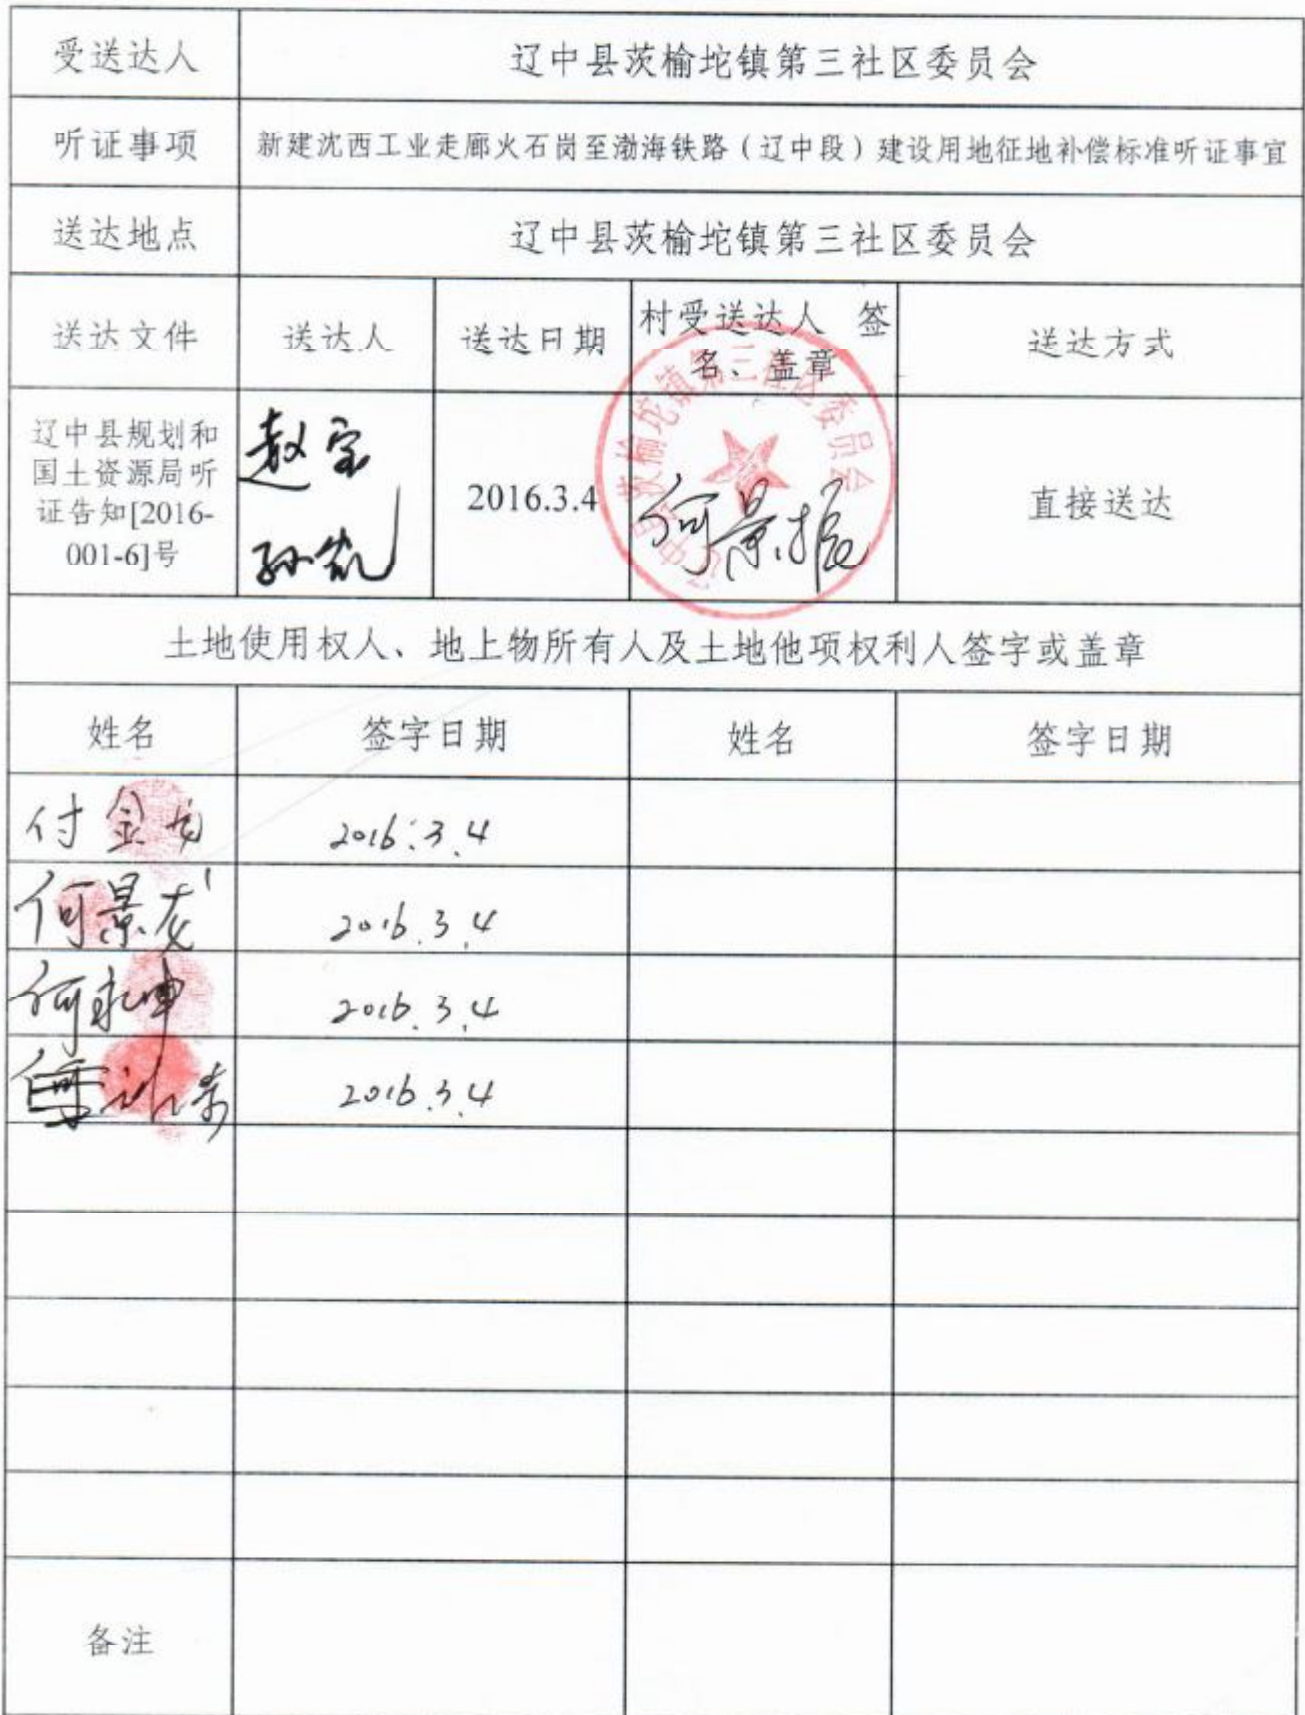 受送达人
辽中县茨榆坨镇第三社区委员会
听证事项
新建沈西工业走廊火石岗至渤海铁路（辽中段）建设用地征地补偿标准听证事宜
送达地点
辽中县茨榆坨镇第三社区委员会
送达文件
送达人
送达日期
村受送达人 签
名、盖章
送达方式
辽中县规划和
国土资源局听
证告知[2016-
001-6]号
赵宝
孙凯
2016.3.4
辽中县茨榆坨镇第三社区委员会
何景振
直接送达
土地使用权人、地上物所有人及土地他项权利人签字或盖章
姓名
签字日期
姓名
签字日期
付金龙
2016.3.4
何景龙
2016.3.4
何永坤
2016.3.4
2016.3.4
备注